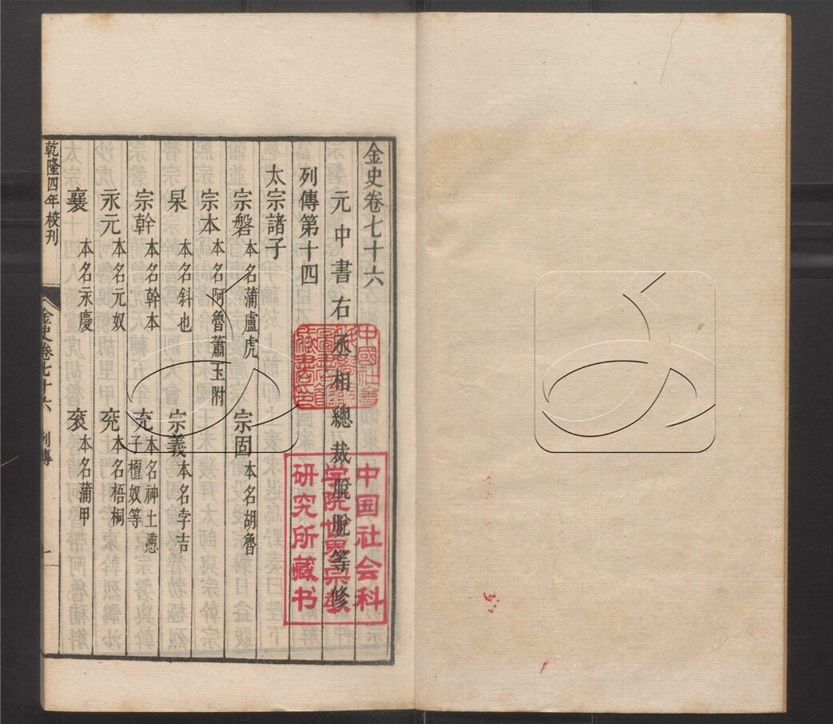 金史卷七十六
元中書右丞相總裁脫脫等修
列傳第十四
太宗諸子
宗磐本名蒲盧虎 宗固本名胡魯
宗本本名阿魯蕭玉附
杲本名斜也 宗義本名孛吉
宗幹本名幹本 充本名神土懣子檀奴等
永元本名元奴 兖本名梧桐
襄本名永慶 袞本名蒲甲
乾隆四年校刊 金史卷七十六 列傳 一
中国社会科
学院世界宗教
研究所藏书